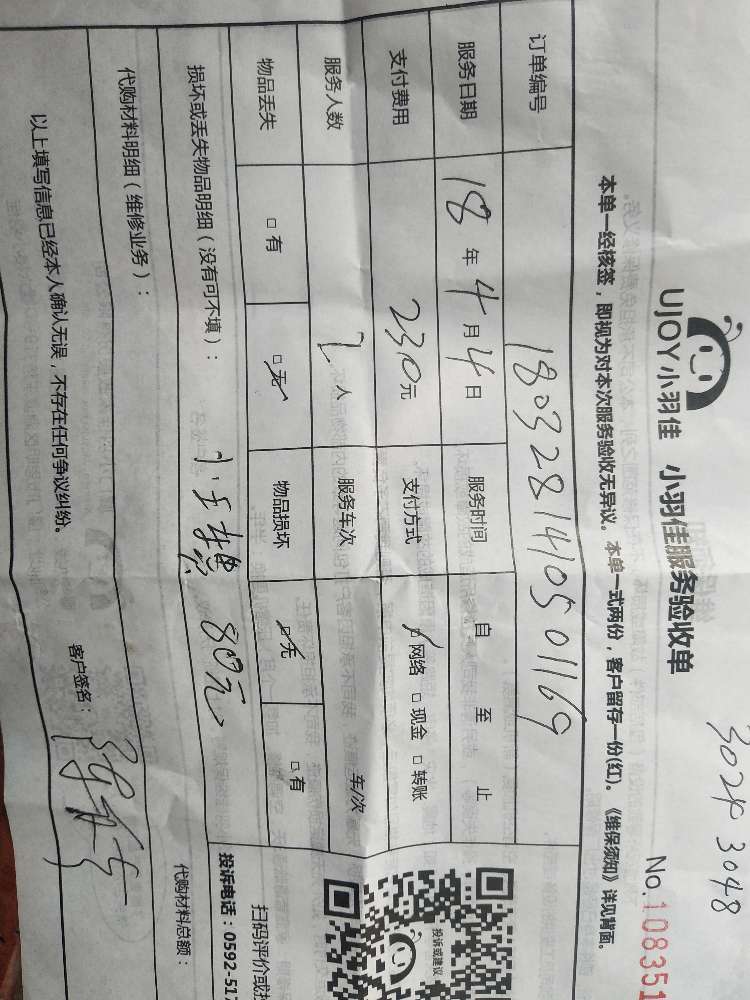 3024 3048
UJOY小羽佳 小羽佳服务验收单
No.108351
本单一经核签，即视为对本次服务验收无异议。本单一式两份，客户留存一份(红)。《维保须知》详见背面。
订单编号 1803281410501169
服务日期 18年4月4日 服务时间 自 至 止
支付费用 2310元 支付方式 □网络 □现金 □转账
服务人数 2人 服务车次 车/次
物品丢失 □有 □无 物品损坏 □无 □有
投诉或建议
扫码评价或投
投诉电话：0592-517
损坏或丢失物品明细（没有可不填）：
80元
代购材料明细（维修业务）： 代购材料总额：
以上填写信息已经本人确认无误，不存在任何争议纠纷。 客户签名：